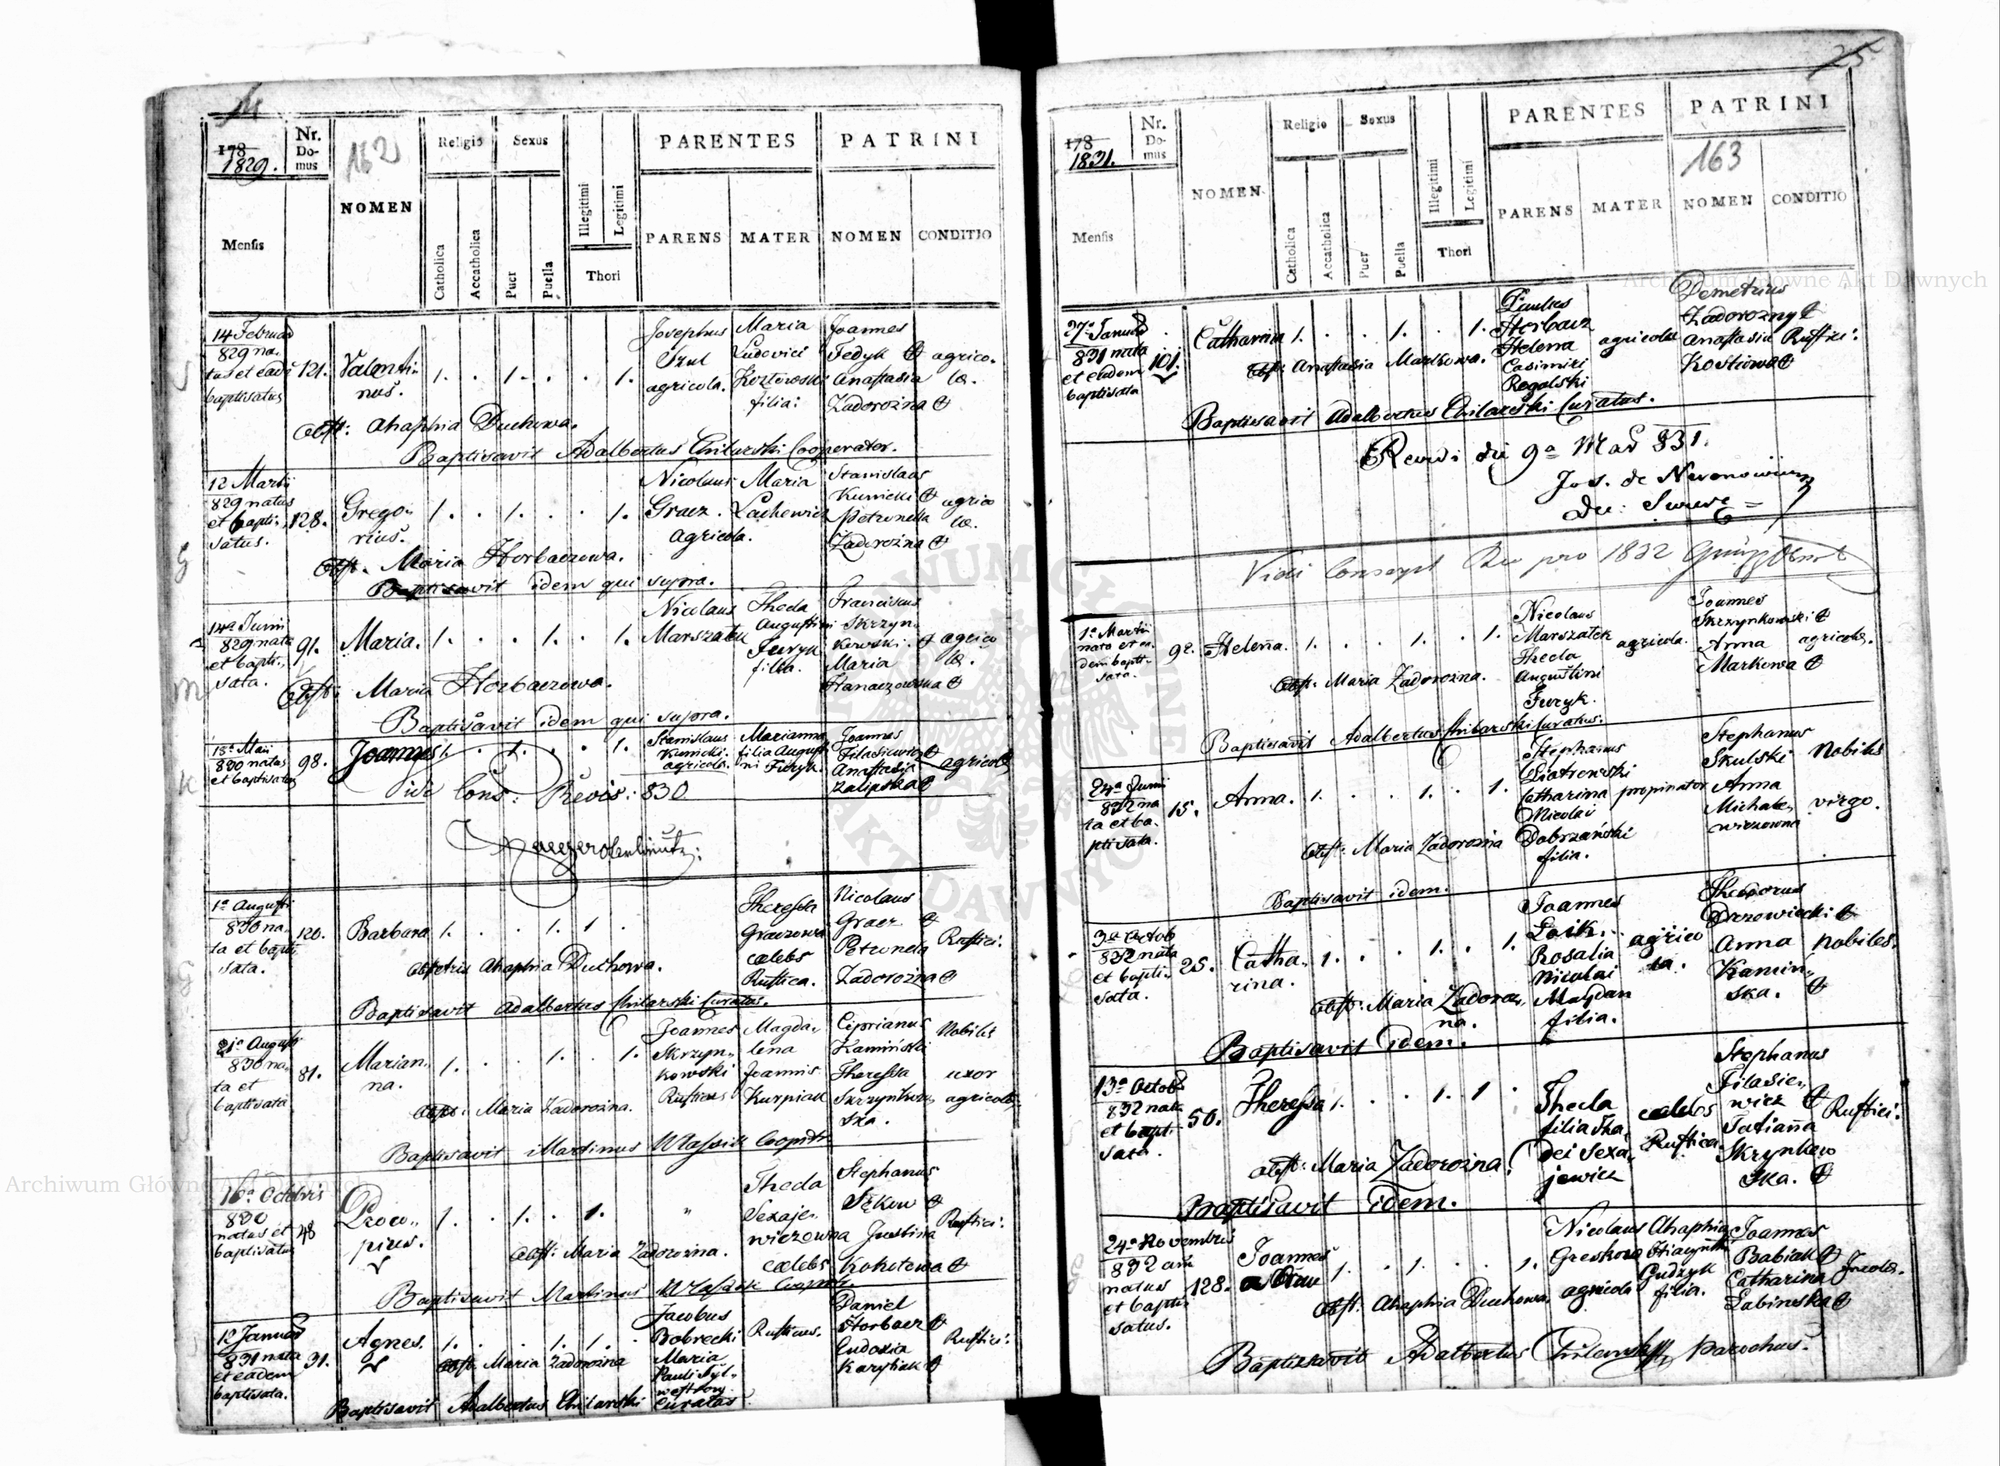 178
1829.
Nr. Do- mus
162
NOMEN
Religio
Sexus
Catholica
Accatholica
Puer
Puella
Illegitimi
Legitimi
Thori
PARENTES
PATRINI
Mensis
PARENS
MATER
NOMEN
CONDITIO
14 Februar
829 na-
tus et eadem
baptisatus
121.
Valenti-
nus.
1. . 1. . . 1.
Josephus
agricola.
Maria
Ludovici
filia:
Joannes
Fedyk ⊕
Anastasia
Zadorożna ⊕
agrico-
læ.
Obst: Ahaphia Duchowa.
Baptisavit Adalbertus Chilarski Cooperator.
12 Martii
829 natus
et bapti-
satus.
128.
Grego-
rius.
1. . 1. . . 1.
Nicolaus
Gracz.
agricola.
Maria
Lachewicz
Stanislaus
Kunicki ⊕
Petronella
Zadorożna ⊕
agrico
læ.
Obst. Maria Horbaczowa.
Baptisavit idem qui supra.
14a Junii
829 nata
et bapti-
sata.
91.
Maria.
1. . . 1. . 1.
Nicolaus
Marszałek
Theda
Augustini
Furyk
filia.
Franciscus
Skrzyn-
kowski. ⊕
Maria
Hanaczowska ⊕
agrico
læ.
Obst: Maria Horbaczowa.
Baptisavit idem qui supra.
13a Maii
830 natus
et baptisatus
98.
Joannes
1. . 1. . . 1.
Stanislaus
Kunicki
agricola.
Marianna
filia Augusti
ni Furyk.
Joannes
Filasiewicz ⊕
Anastasia
Zalipska ⊕
agricolæ
830
1a Augusti
830 na-
ta et bapti
sata.
120.
Barbara
1. . . 1. 1 .
Theressa
Graczowa
cælebs
Rustica.
Nicolaus
Gracz ⊕
Petronela
Zadorożna ⊕
Rustici.
Obstetrix Ahaphia Duchowa.
Baptisavit Adalbertus Chilarski Curatus.
21a Augusti
830 na-
ta et
baptisata
81.
Marian-
na.
1. . . 1. . 1.
Joannes
Skrzyn-
kowski
Rusticus
Magda-
lena
Joannis
Kurpiak
Ciprianus
Kamiński
Theressa
Skrzynkow
ska.
Nobilis
uxor
agricolæ
Obst: Maria Zadorożna.
Baptisavit Martinus
16a Octobris
830
natus et
baptisatus
48
Proco-
pius.
1. . 1. . 1.
Theda
Sexaje-
wiczowna
cælebs
Stephanus
Sękow ⊕
Justina
Kokotowa ⊕
Rustici.
Obst: Maria Zadorożna.
Baptisavit Martinus
12 Januar
831 nata
et eadem
baptisata.
31.
Agnes.
1. . . 1. 1.
Jacobus
Bobrecki
Maria
Pauli Syl-
westrow
Rusticus.
Daniel
Horbacz ⊕
Eudoxia
Karybiak ⊕
Rustici.
Obst. Maria Zadorożna
Baptisavit Adalbertus Chilarski Curatus.
25
178
1831.
Nr. Do- mus
NOMEN
Religio
Sexus
Catholica
Accatholica
Puer
Puella
Illegitimi
Legitimi
Thori
PARENTES
PATRINI
163
Mensis
PARENS
MATER
NOMEN
CONDITIO
27a Januar
831 nata
et eadem
baptisata
101.
Catharina
1. . . 1. . 1.
Paulus
Horbacz
Helena
Casimiri
Rogalski
agricola
Demetrius
Zadorożny ⊕
Anastasia
Kostiowa ⊕
Rustici.
Obst: Anastasia Markowa.
Baptisavit Adalbertus Chilarski Curatus.
9a 831.
Jos. de
pro 1832
1a Martii
nata et ea
dem bapti-
sata.
92.
Helena.
1. . . 1. . 1.
Nicolaus
Marszałek
Theda
Augustini
Furyk.
agricola.
Joannes
Skrzynkowski ⊕
Anna
Markowa ⊕
agricolæ.
Obst: Maria Zadorożna.
Baptisavit Adalbertus Chilarski Curatus.
24a Junii
832 na
ta et ba-
ptisata.
15.
Anna.
1. . . 1. . 1.
Stephanus
Piatrowski
Catharina
Nicolai
Dobrzański
filia.
propinator
Stephanus
Skulski
Anna
Michale-
wiczowna
Nobiles
virgo.
Obst: Maria Zadorożna
Baptisavit idem.
3a Octob
832 nata
et bapti-
sata.
25.
Catha-
rina.
1. . . 1. . 1.
Joannes
Łoik.
Rosalia
Nicolai
Magdan
filia.
agrico
la.
Theodorus
Drozowiecki ⊕
Anna
Kamiń-
ska. ⊕
Nobiles.
Obst: Maria Zadoroż-
na.
Baptisavit idem.
13a Octob
832 nata
et bapti-
sata.
50.
Theressa
1. . . 1. 1 .
Theda
filia Tha-
dei Sexa-
jewicz
cælebs
Rustica.
Stephanus
Filasie-
wicz ⊕
Tatianna
Skrynkow
ska. ⊕
Rustici.
Obst: Maria Zadorożna.
Baptisavit idem.
24a Novembris
832 an
natus
et bapti-
satus.
128.
Joannes
1. . 1. . . 1.
Nicolaus
Greskow
agricola
Ahaphia
Hiacynthi
Gudzyk
filia.
Joannes
Babiak ⊕
Catharina
Labinska ⊕
Obst. Ahaphia Duchowa.
Baptisavit Adalbertus Chilarski Parochus.
Archiwum Główne Akt Dawnych
Archiwum Główne Akt Dawnych
ARCHIWUM GŁÓWNE
AKT DAWNYCH